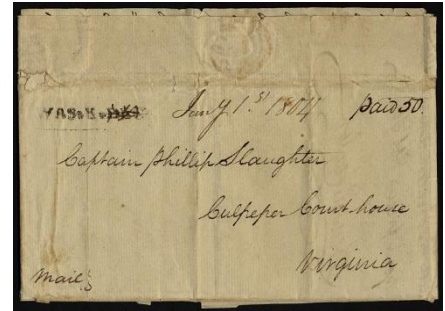 WASH. Jan.y 1.st 1804 Paid 50.
Captain Phillip Slaughter
Culpeper Court house
Virginia
Mail